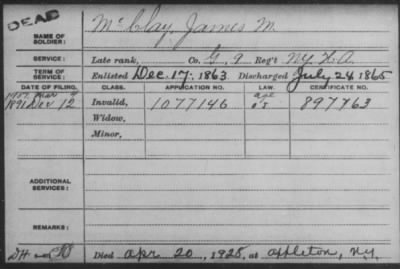 DEAD
NAME OF SOLDIER: McClay, James M.
SERVICE: Late rank, Co. G, 9 Reg't N.Y.H.A.
TERM OF SERVICE: Enlisted Dec. 17, 1863 Discharged July 24, 1865
DATE OF FILING. CLASS. APPLICATION NO. LAW. CERTIFICATE NO.
1907 Mar 9
1891 Dec 12 Invalid, 1077146 897763
Widow,
Minor,
ADDITIONAL SERVICES:
REMARKS:
Died Apr. 20, 1925, at Appleton, N.Y.